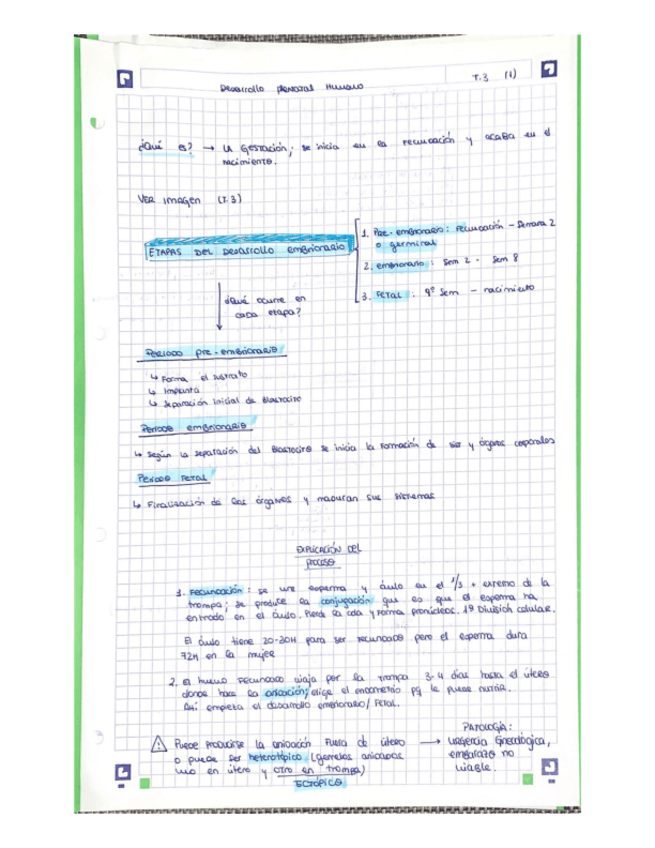 Desarrollo prenatal Humano
T.3 (1)
¿Qué es? → La Gestación; se inicia en la fecundación y acaba en el
nacimiento.
VER imagen (T.3)
ETAPAS DEL DESARROLLO EMBRIONARIO
1. Pre-embrionario: Fecundación - Semana 2
o germinal
2. embrionario: Sem 2 - Sem 8
3. FETAL: 9º Sem - nacimiento
¿Qué ocurre en
cada etapa?
PERIODO pre-embrionario
↳ Forma el sustrato
↳ Implanta
↳ Separación inicial de Blastocito
Periodo embrionario
↳ Según la separación del Blastocito se inicia la Formación de ser y órganos corporales
Periodo Fetal
↳ Finalización de los órganos y maduran sus sistemas
EXPLICACIÓN DEL
PROCESO
1. Fecundación: se une esperma y óvulo en el 1/3 + externo de la
trompa; se produce la conjugación que es que el esperma ha
entrado en el óvulo. Pierde la cola y forma pronúcleos. 1º División celular.
El óvulo tiene 20-30H para ser fecundado pero el esperma dura
72H en la mujer
2. El huevo Fecundado viaja por la trompa 3-4 días hasta el útero
donde hace la anidación; elige el endometrio pq le puede nutrir.
Así empieza el desarrollo embrionario/Fetal.
⚠ Puede producirse la anidación Fuera de útero
o puede ser heterotópico (gemelos anidados
uno en útero y otro en trompa)
ECTÓPICO
→ PATOLOGÍA:
Urgencia Ginecológica,
embarazo no
viable.